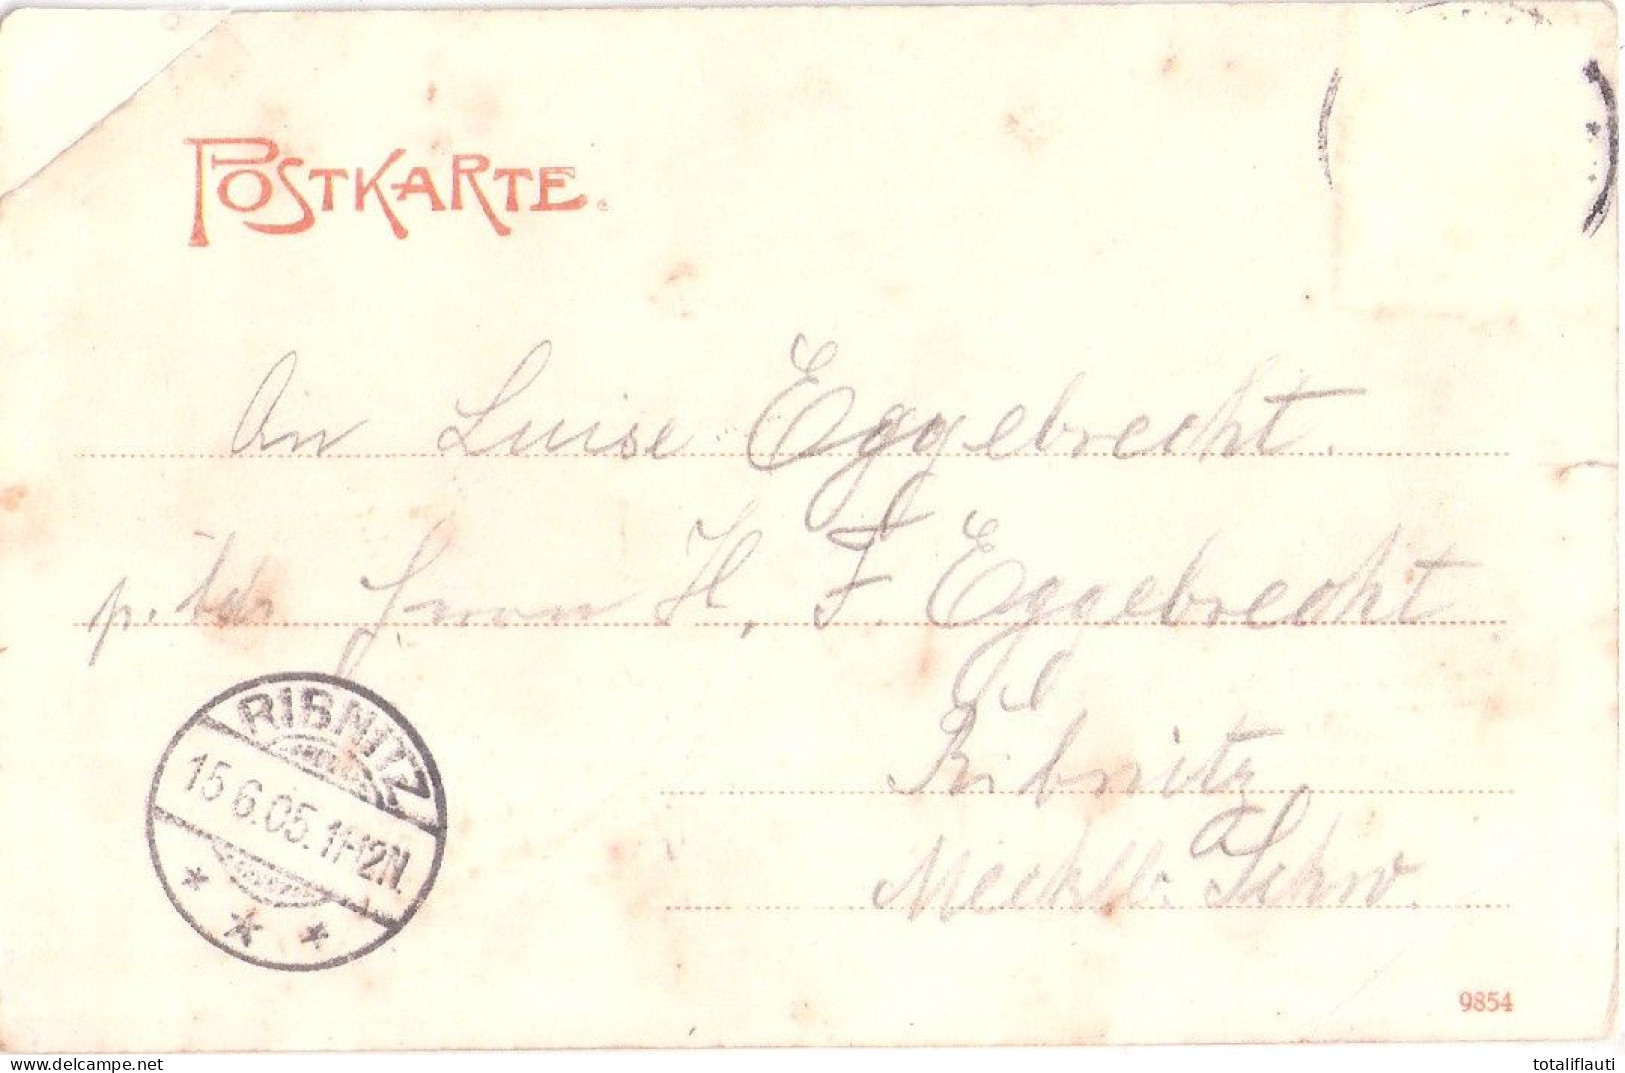 POSTKARTE.
An Luise Eggebrecht.
p. Adr. Frau H. F. Eggebrecht
Ribnitz
Meckl. Schw.
RIBNITZ
15 6.05. 11-12N.
9854
delcampe.net
totaliflauti